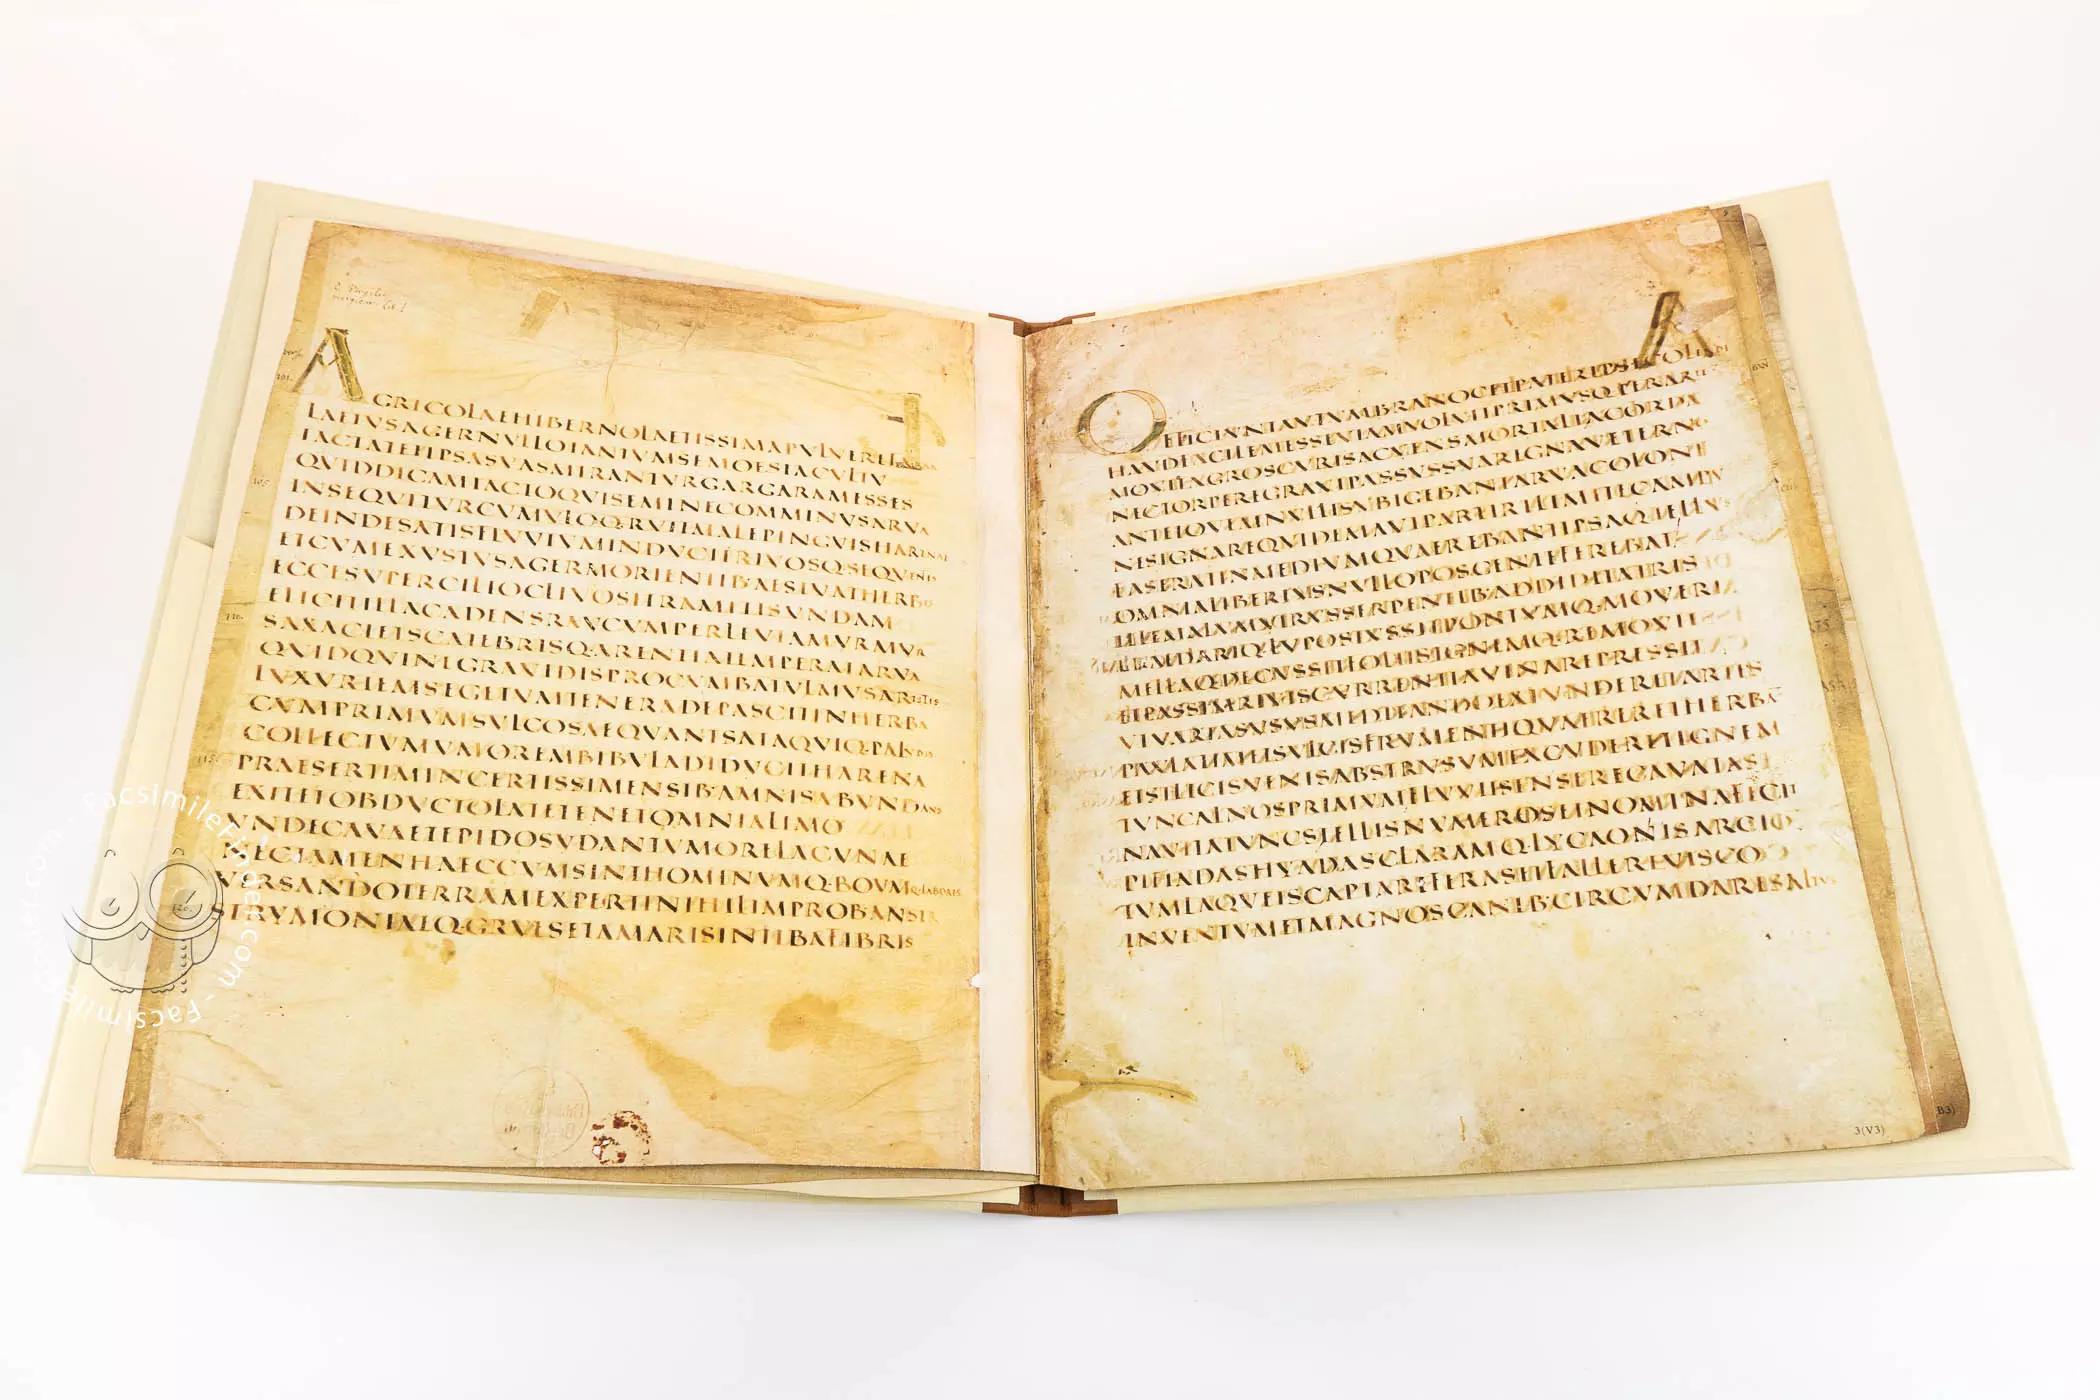 AGRICOLAEHIBERNOLAETISSIMAPVLVEREFARRA
LAETVSAGERNVLLOTANTVMSEMOESIACVLTV
IACTATETIPSASVASMIRANTVRGARGARAMESSES
QVIDDICAMIACTOQVISEMINECOMMINVSARVA
INSEQVITVRCVMVLOQ·RVITMALEPINGVISHARENAE
DEINDESATISFLVVIVMINDVCITRIVOSQ·SEQVENTIS
ETCVMEXVSTVSAGERMORIENTIB·AESTVATHERBIS
ECCESVPERCILIOCLIVOSITRAMITISVNDAM
ELICITILLACADENSRAVCVMPERLEVIAMVRMVR
SAXACIETSCATEBRISQ·ARENTIATEMPERATARVA
QVIDQVINEGRAVIDISPROCVMBATVLMVSARISTIS
LVXVRIEMSEGETVMTENERADEPASCITINHERBA
CVMPRIMVMSVLCOSAEQVANTSATAQVIQ·PALVDIS
COLLECTVMVMOREMBIBVLADIDVCITHARENA
PRAESERTIMINCERTISSIMENSIB·AMNISABVNDANS
EXITETOBDVCTOLATETENETOMNIALIMO
VNDECAVAETEPIDOSVDANTVMORELACVNAE
NECTAMENHAECCVMSINTHOMINVMQ·BOVMQ·LABORES
VERSANDOTERRAMEXPERTINIHILIMPROBANSER
STRYMONIAEQ·GRVESETAMARISINTIBAFIBRIS
OFFICIVNTAVTVMBRANOCETPATERIPSECOLENDI
HAVDFACILEMESSEVIAMVOLVITPRIMVSQ·PERARTE
MOVITAGROSCVRISACVENSMORTALIACORDA
NECTORPEREGRAVIPASSVSSVAREGNAVETERNO
ANTEIOVEMNVLLISVBIGEBANTARVACOLONI
NESIGNAREQVIDEMAVTPARTIRILIMITECAMPV
FASERATINMEDIVMQVAEREBANTIPSAQ·TELLVS
OMNIALIBERIVSNVLLOPOSCENTEFEREBAT
ILLEMALVMVIRVSSERPENTIB·ADDIDITATRIS
PRAEDARIQ·LVPOSIVSSITPONTVMQ·MOVERI
MELLAQ·DECVSSITFOLIISIGNEMQ·REMOVIT
ETPASSIMRIVISCVRRENTIAVINAREPRESSIT
VTVARIASVSVSMEDITANDOEXTVNDERETARTIS
PAVLATIMETSVLCISFRVMENTIQVAERERETHERBA
ETSILICISVENISABSTRVSVMEXCVDERETIGNEM
TVNCALNOSPRIMVMFLVVIISENSERECAVATAS
NAVITATVNCSTELLISNVMEROSETNOMINAFECIT
PLEIADASHYADASCLARAMQ·LYCAONISARCTO
TVMLAQVEISCAPTAREFERASETFALLEREVISCO
INVENTVMETMAGNOSCANIB·CIRCVMDARESALTVS
3(V3)
FacsimileFinder.com